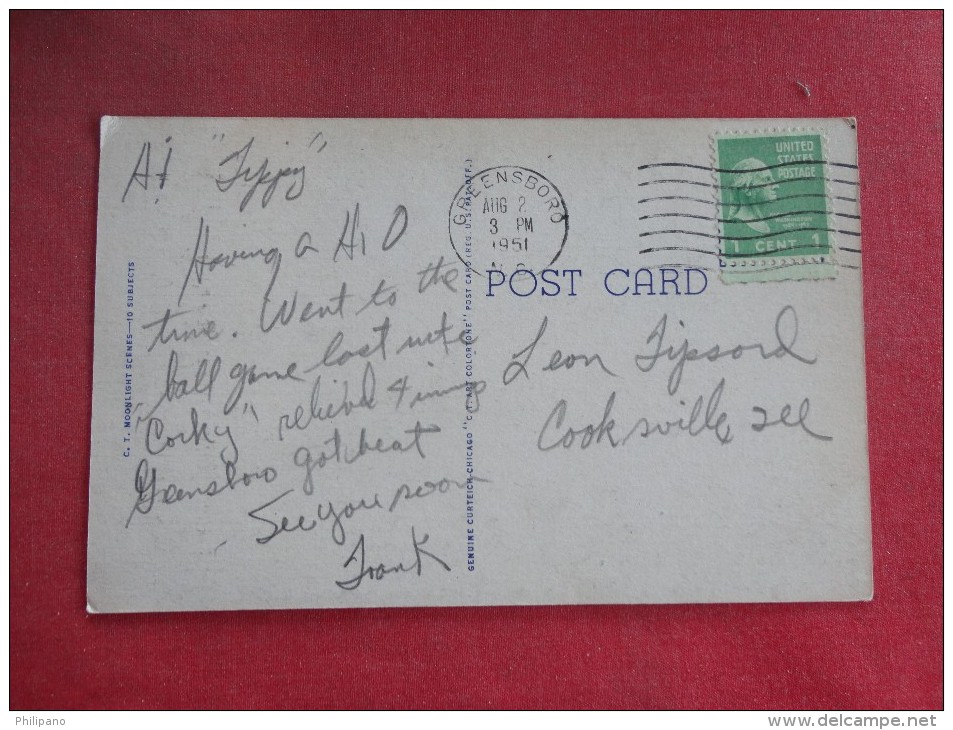 Hi "Tippy"
Having a Hi O
time. Went to the
ball game last nite
"Corky" relieved 4 inning
Geensboro got beat
See you soon
Frank
C. T. MOONLIGHT SCENES—10 SUBJECTS
GENUINE CURTEICH-CHICAGO "C. T. ART-COLORTONE" POST CARD (REG. U. S. PAT. OFF.)
GREENSBORO
AUG 2
3 PM
1951
UNITED
STATES
POSTAGE
WASHINGTON
1 CENT 1
POST CARD
Leon Tipsord
Cooksville, Ill
Philipano
www.delcampe.net